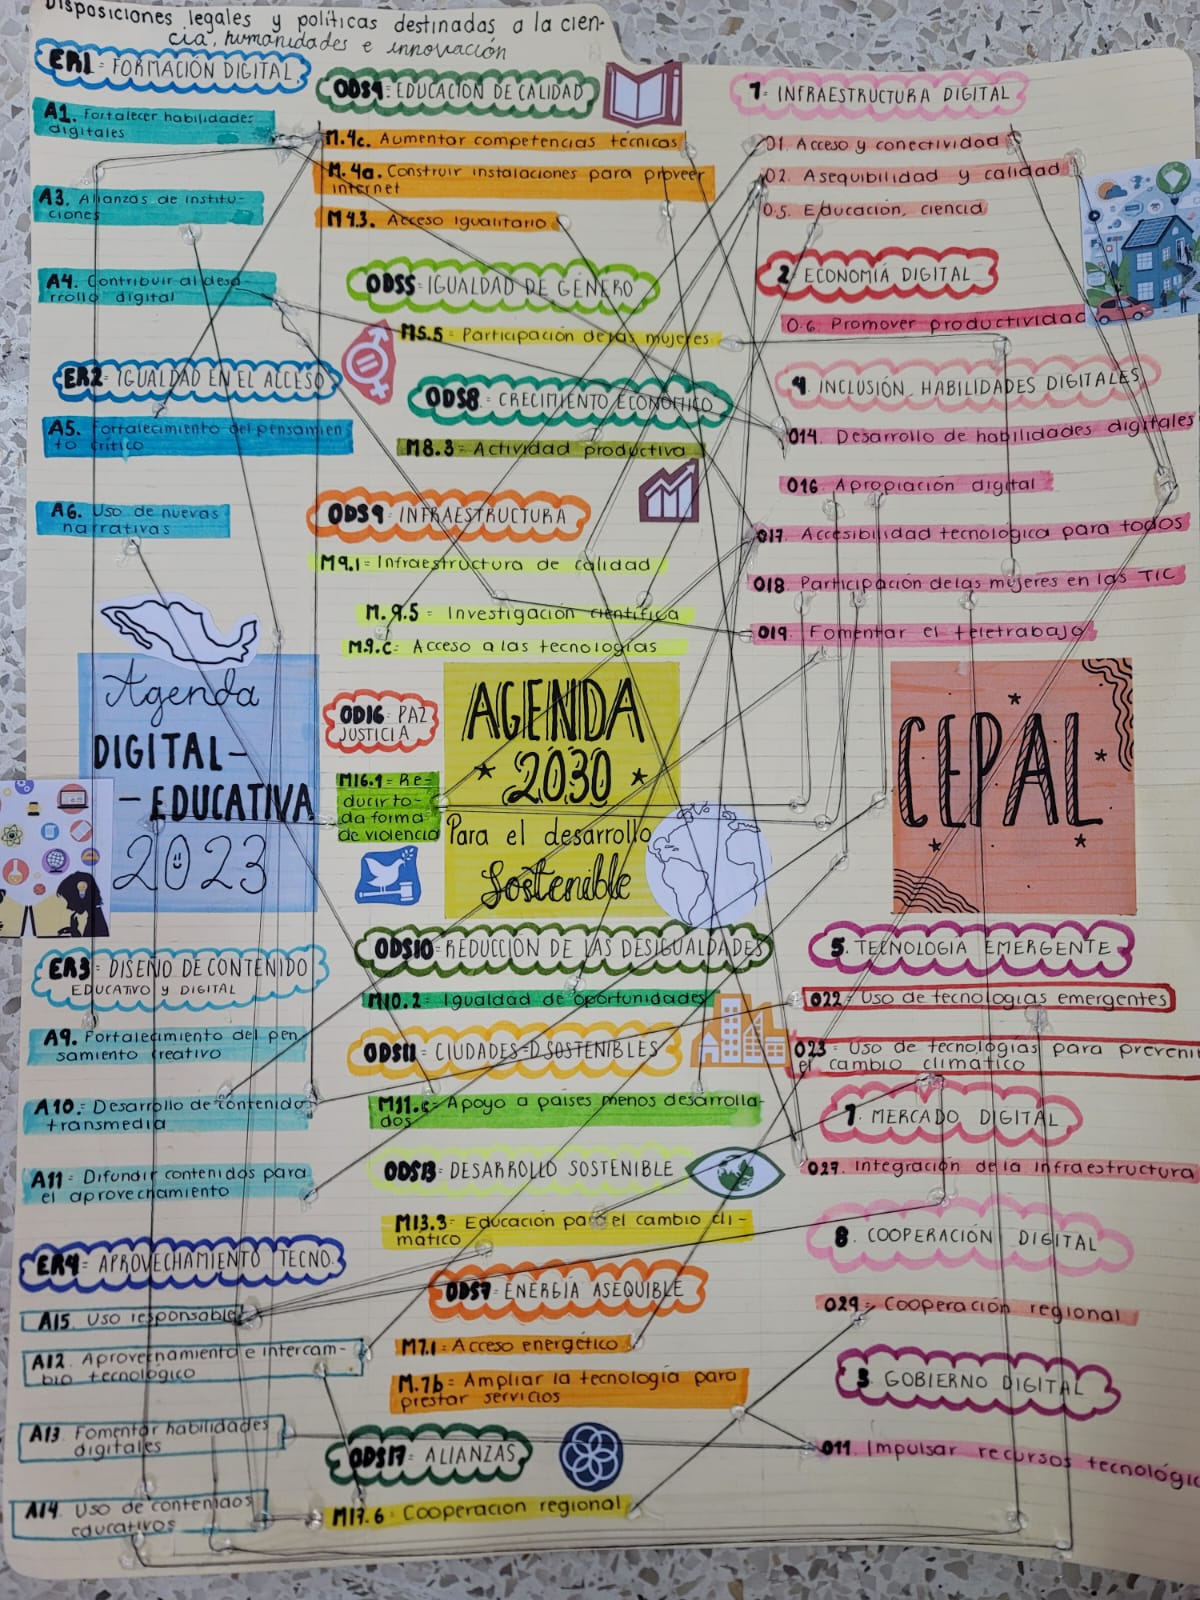 Disposiciones legales y políticas destinadas a la cien-
cia, humanidades e innovación
ER1= FORMACIÓN DIGITAL.
A1. Fortalecer habilidades
digitales
A3. Alianzas de institu-
ciones
A4. Contribuir al desa
rrollo digital
ER2= IGUALDAD EN EL ACCESO
A5. Fortalecimiento del pensamien
to crítico
A6. Uso de nuevas
narrativas
Agenda
DIGITAL-
-EDUCATIVA
2023
ER3= DISEÑO DE CONTENIDO
EDUCATIVO y DIGITAL
A9. Fortalecimiento del pen
samiento creativo
A10.= Desarrollo de contenido
transmedia
A11= Difundir contenidos para
el aprovechamiento
ER4= APROVECHAMIENTO TECNO.
A15. Uso responsable
A12. Aprovechamiento e intercam-
bio tecnológico
A13. Fomentar habilidades
digitales
A14. Uso de contenidos
educativos
ODS4=EDUCACIÓN DE CALIDAD
M.4c. Aumentar competencias técnicas
M.4a. Construir instalaciones para proveer
internet
M4.3. Acceso igualitario
ODS5=IGUALDAD DE GÉNERO
M5.5= Participación de las mujeres
ODS8= CRECIMIENTO ECONÓMICO
M8.3= Actividad productiva
ODS9= INFRAESTRUCTURA
M9.1= Infraestructura de calidad
M.9.5= Investigación científica
M.9.c= Acceso a las tecnologías
OD16= PAZ
JUSTICIA
M16.1= Re-
ducir to-
da forma
de violencia
AGENDA
2030
Para el desarrollo
Sostenible
ODS10=REDUCCIÓN DE LAS DESIGUALDADES
M10.2= Igualdad de oportunidades
ODS11= CIUDADES=D SOSTENIBLES
M11.c= Apoyo a países menos desarrolla-
dos
ODS13= DESARROLLO SOSTENIBLE
M13.3= Educación para el cambio cli-
mático
ODS7=ENERGÍA ASEQUIBLE
M7.1= Acceso energético
M.7b= Ampliar la tecnología para
prestar servicios
ODS17= ALIANZAS
M17.6= Cooperación regional
1= INFRAESTRUCTURA DIGITAL
01. Acceso y conectividad
02. Asequibilidad y calidad
0.5. Educación, ciencia
2 ECONOMÍA DIGITAL
0.6. Promover productividad
4 INCLUSIÓN, HABILIDADES DIGITALES
014. Desarrollo de habilidades digitales
016. Apropiación digital
017. Accesibilidad tecnológica para todos
018 Participación de las mujeres en las TIC
019. Fomentar el teletrabajo
CEPAL
5. TECNOLOGÍA EMERGENTE
022= Uso de tecnologías emergentes
023= Uso de tecnologías para preveni
el cambio climático
7. MERCADO DIGITAL
027. Integración de la infraestructura
8. COOPERACIÓN DIGITAL
029= Cooperación regional
3. GOBIERNO DIGITAL
011. Impulsar recursos tecnológic